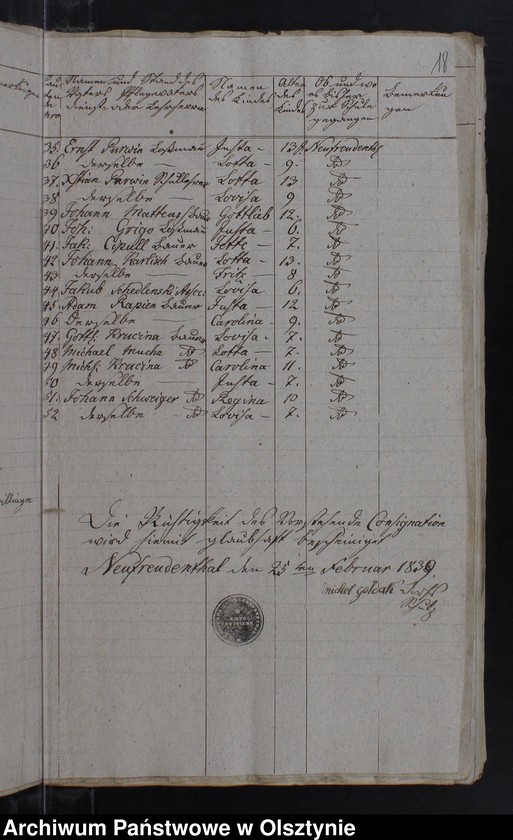 18
Namen und Stand des Vaters Pflegevaters dienst oder Lehrherrn
Namen des Kindes
Alter des Kindes
Ob und wo es bisher zur Schule gegangen
Bemerkungen
35. Ernst Purwin Losmann Justa — 13 Neufreudenthl
36 derselbe — Lotta — 9. do
37. Xstian Parwin Schullehrer Lotta 13 do
38 derselbe — Lovisa 9 do
39 Johann Matteus Bau Gottlieb 12. do
40 Joh: Grigo Losmann Justa — 6. do
41. Jak: Czpull Bauer Jette — 7. do
42 Johann Karlisch Bauer Lotta — 13. do
43 derselbe — Fritz — 8 do
44 Jakub Lovisa 6. do
45. Adam Rapien Bauer Justa — 12 do
46 Derselbe Carolina — 9. do
47. Gottl. Krucina Bauer Lovisa — 7. do
48 Michael Mucha do Lotta — 7. do
49 Mich. Krucina do Carolina 11. do
50 derselbe — Justa — 7. do
51. Johann Schweiger do Regina 10 do
52 derselbe — do Lovisa — 7. do
Die Richtigkeit des Vorstehende Consignation
wird hiemit glaubhaft bescheiniget
Neufreudenthal den 25ten Februar 1839.
michel goldak Dorfs
Schulz
Archiwum Państwowe w Olsztynie